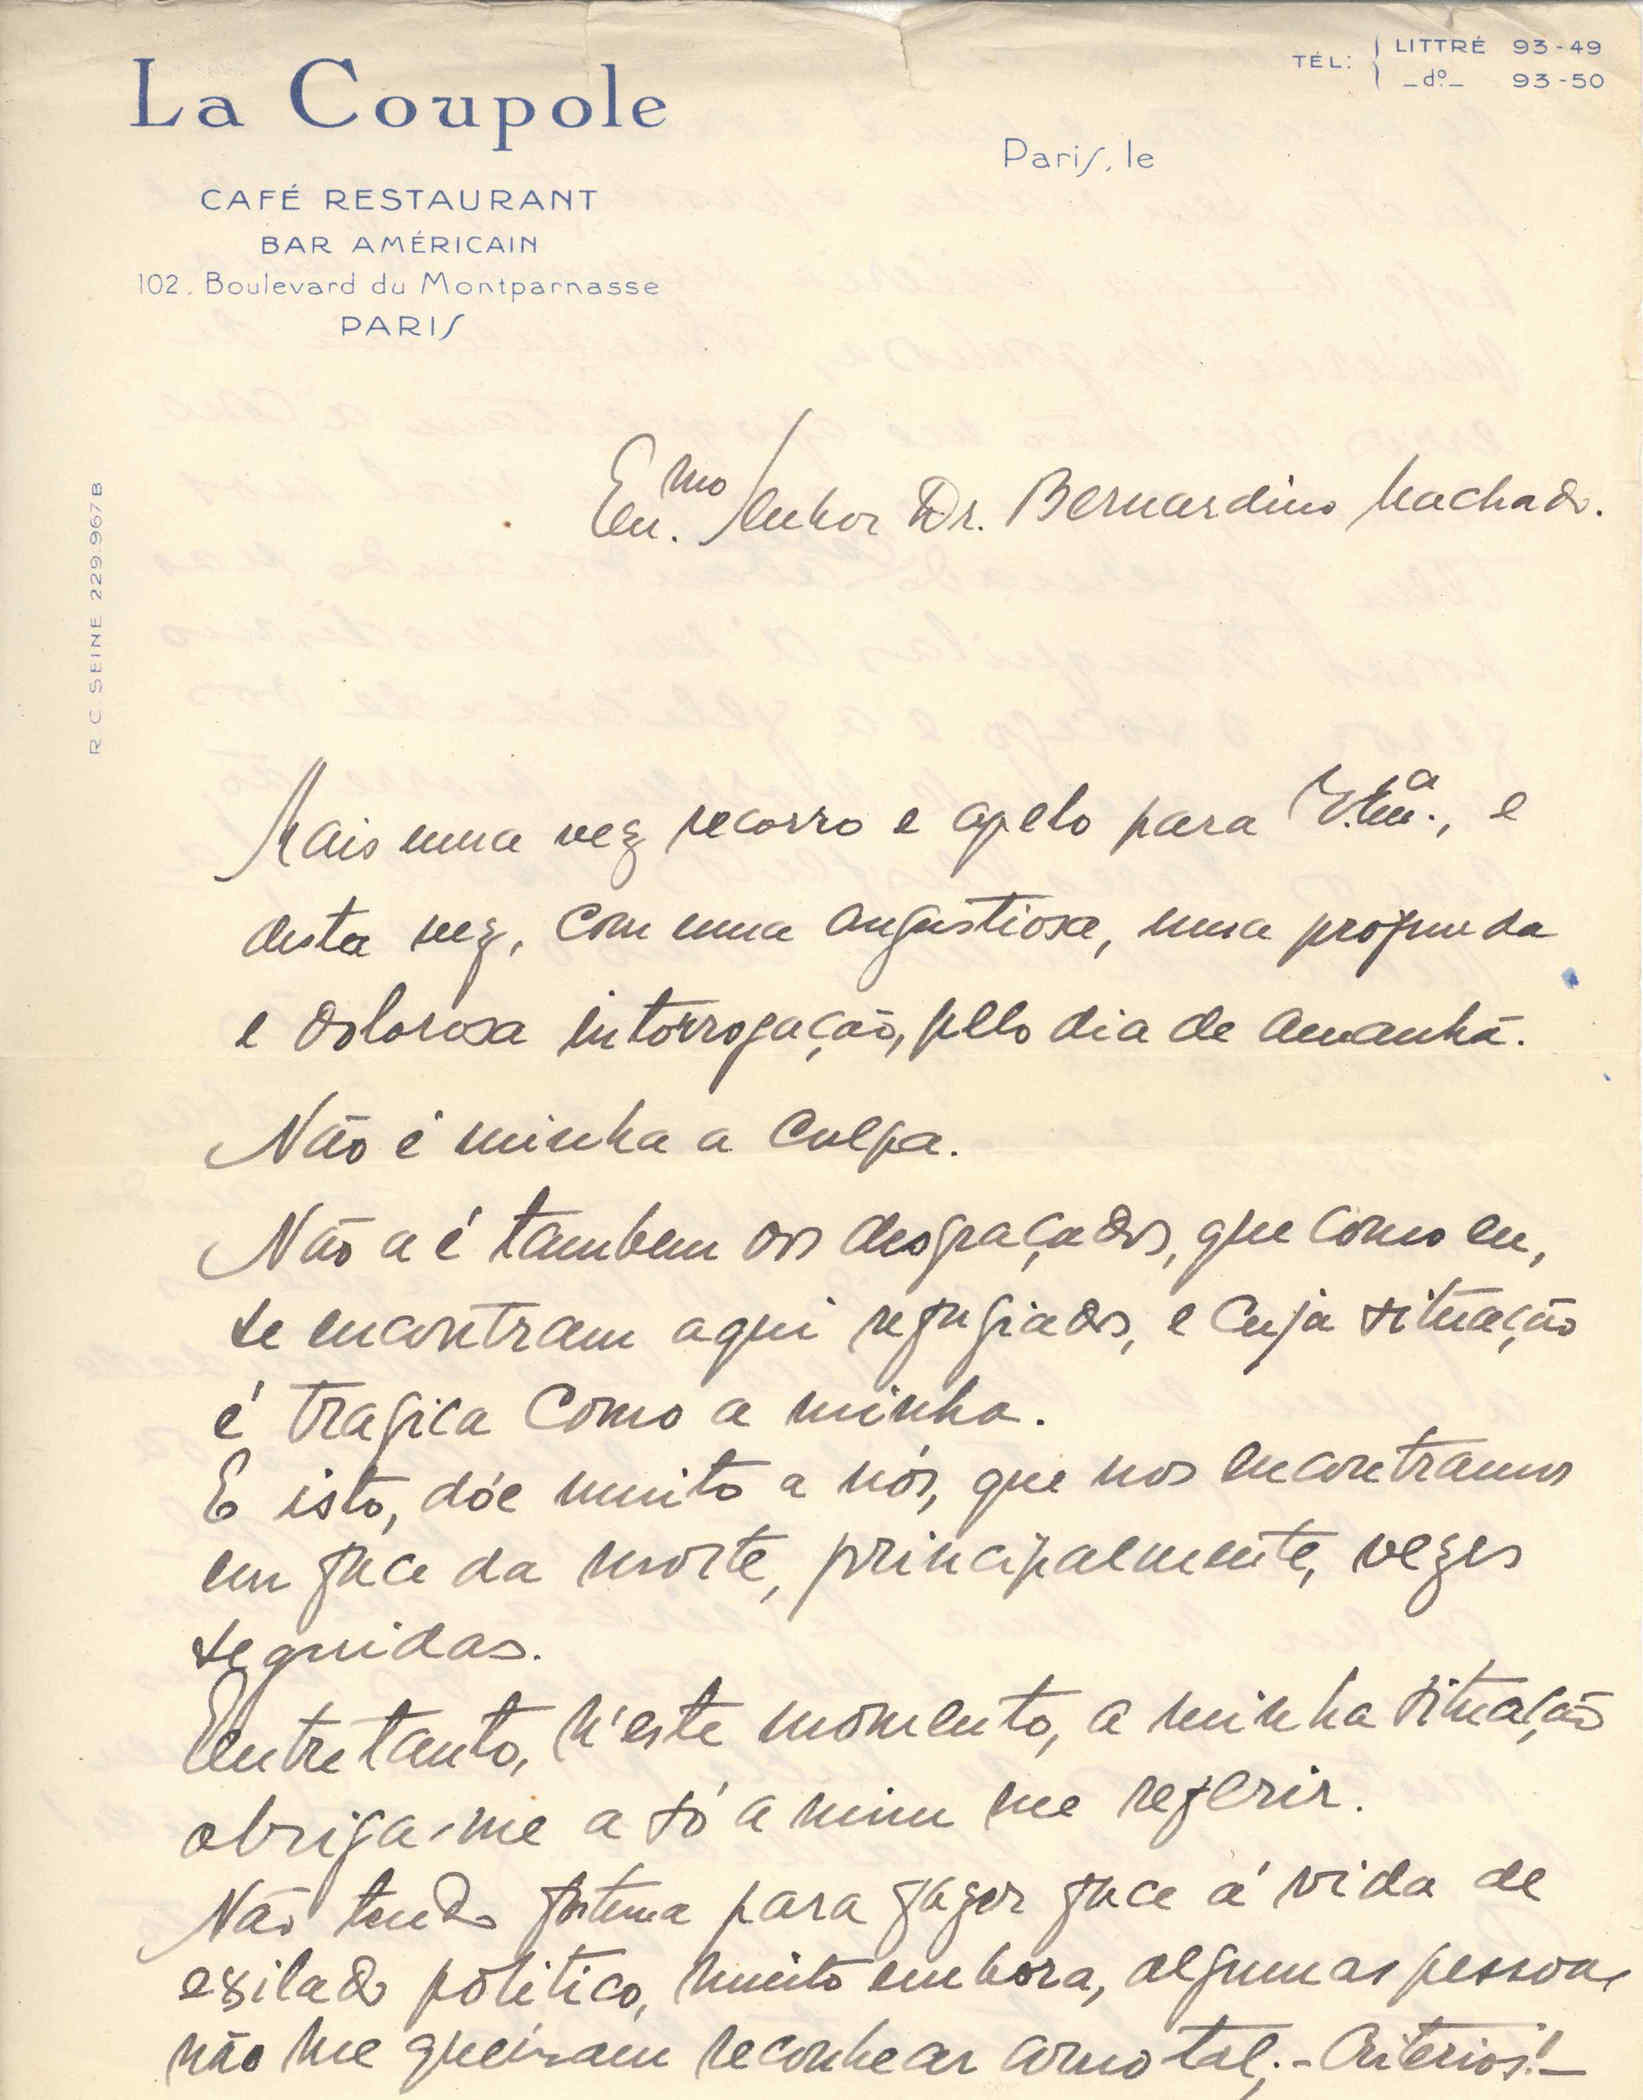 La Coupole
CAFÉ RESTAURANT
BAR AMÉRICAIN
102, Boulevard du Montparnasse
PARIS
TÉL: LITTRÉ 93-49
_dº_ 93-50
Paris, le
R. C. SEINE 229.967 B
Em.mo Senhor Dr. Bernardino Machado.
Mais uma vez recorro e apelo para V. Em.ª, e
desta vez, com uma angustiosa, uma profunda
e dolorosa interrogação, pelo dia de amanhã.
Não é minha a culpa.
Não a é tambem dos desgraçados, que como eu,
se encontram aqui refugiados, e cuja situação
é tragica como a minha.
E isto, dóe muito a nós, que nos encontramos
em face da morte, principalmente, vezes
seguidas.
Entretanto, n'este momento, a minha situação
obriga-me a só a mim me referir.
Não tendo fortuna para fazer face á vida de
exilado politico, muito embora, algumas pessoas
não me queiram reconhecer como tal; - Criterios! -